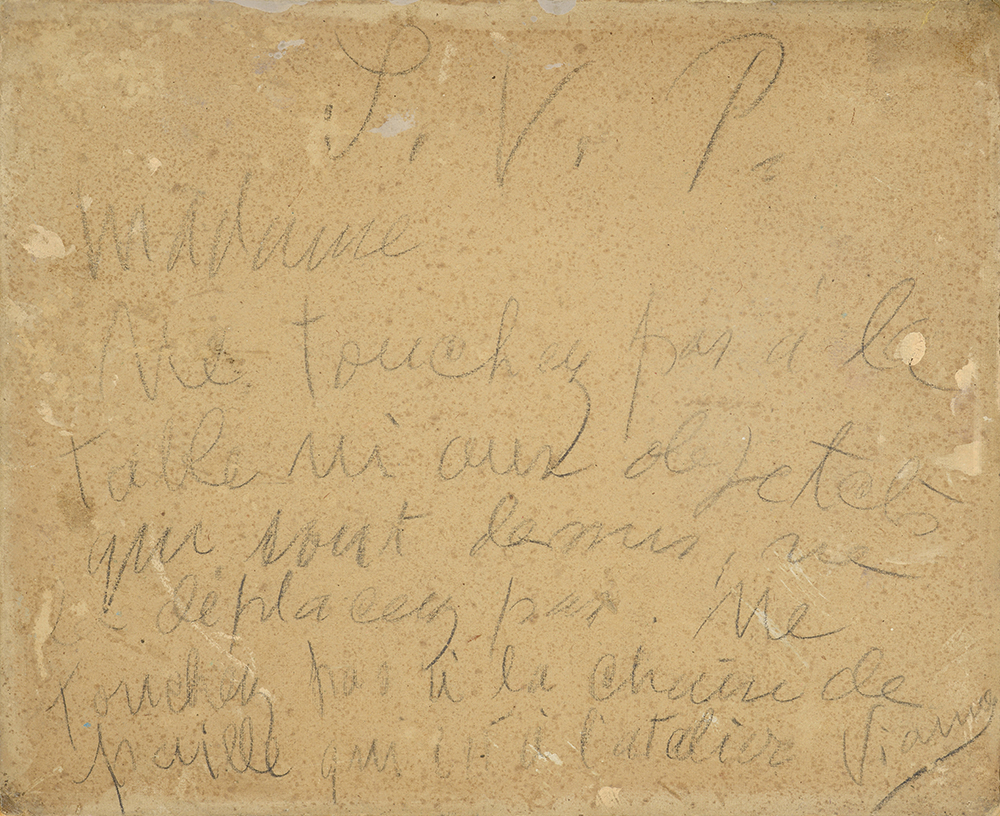 S. V. P.
Madame
Ne touchez pas à la
table ni aux objets
qui sont dessus, ne
les déplacez pas. Ne
touchez pas à la chaise de
paille qui à l'atelier